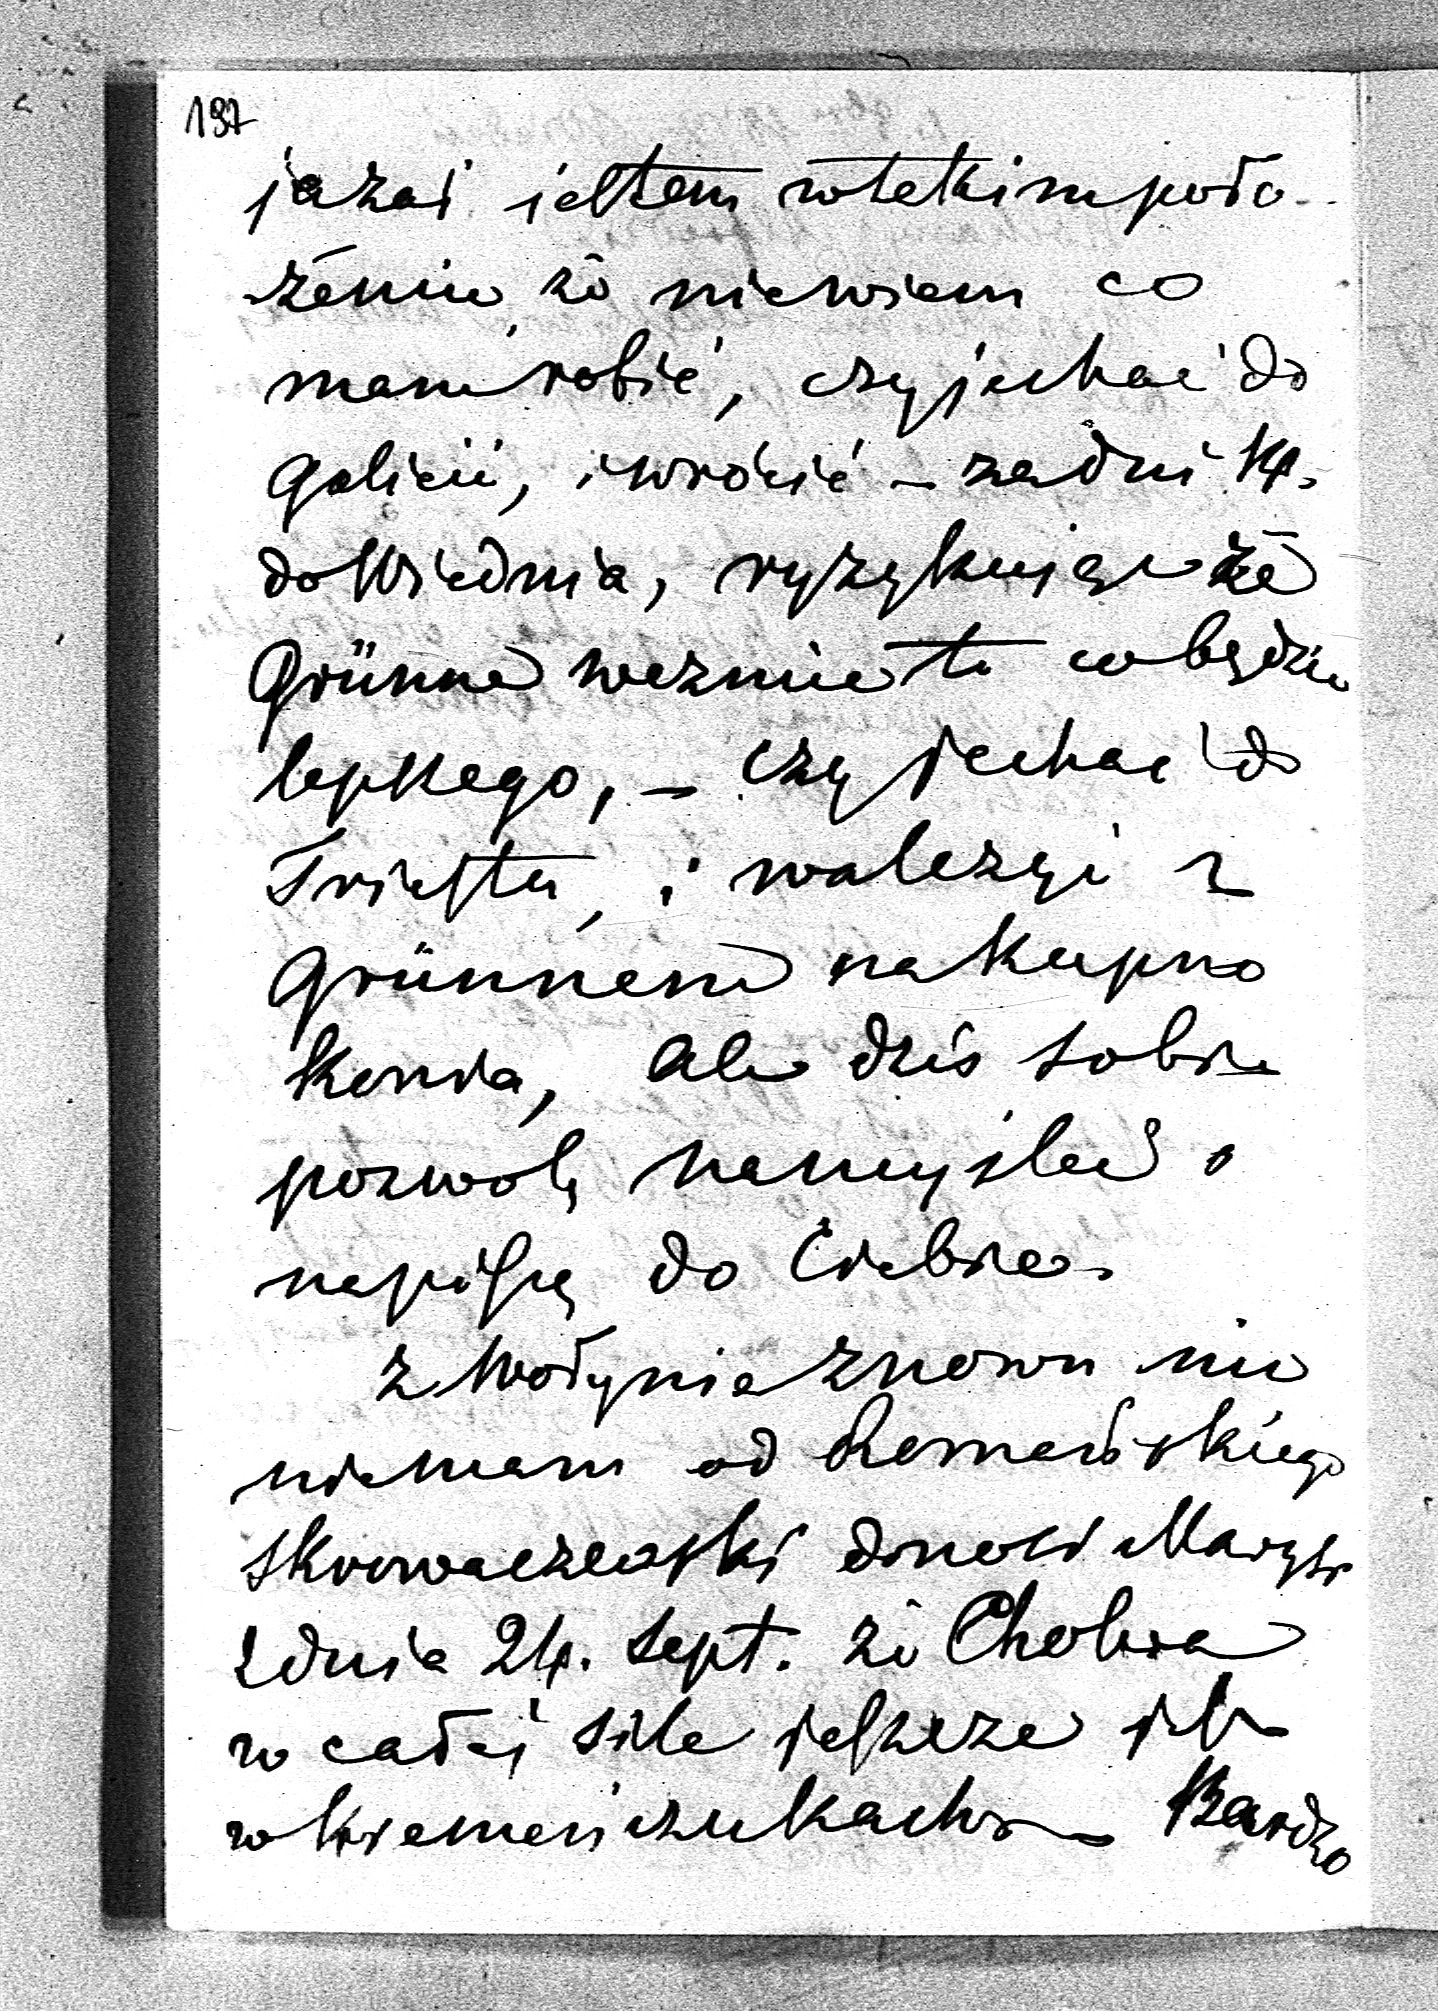 197
ja zaś jestem w takim poło
żeniu że niewiem co
mam robić, czy jechać do
Galicii, i wrócić – za dni 14.
do Wiednia, ryzykując że
Grünne weźmie to co będzie
lepszego, – czy jechać do
Triestu, i walczyć z
Grünnem na kupno
konia, ale dziś sobie
pozwolę namyśleć i
napiszę do Ciebie.
z Wołynia znowu nic
niemam od
Skrowaczewski donosi
z dnia 24. Sept. że Cholera
w całej sile jeszcze jest
w Kremeńczukach – Bardzo